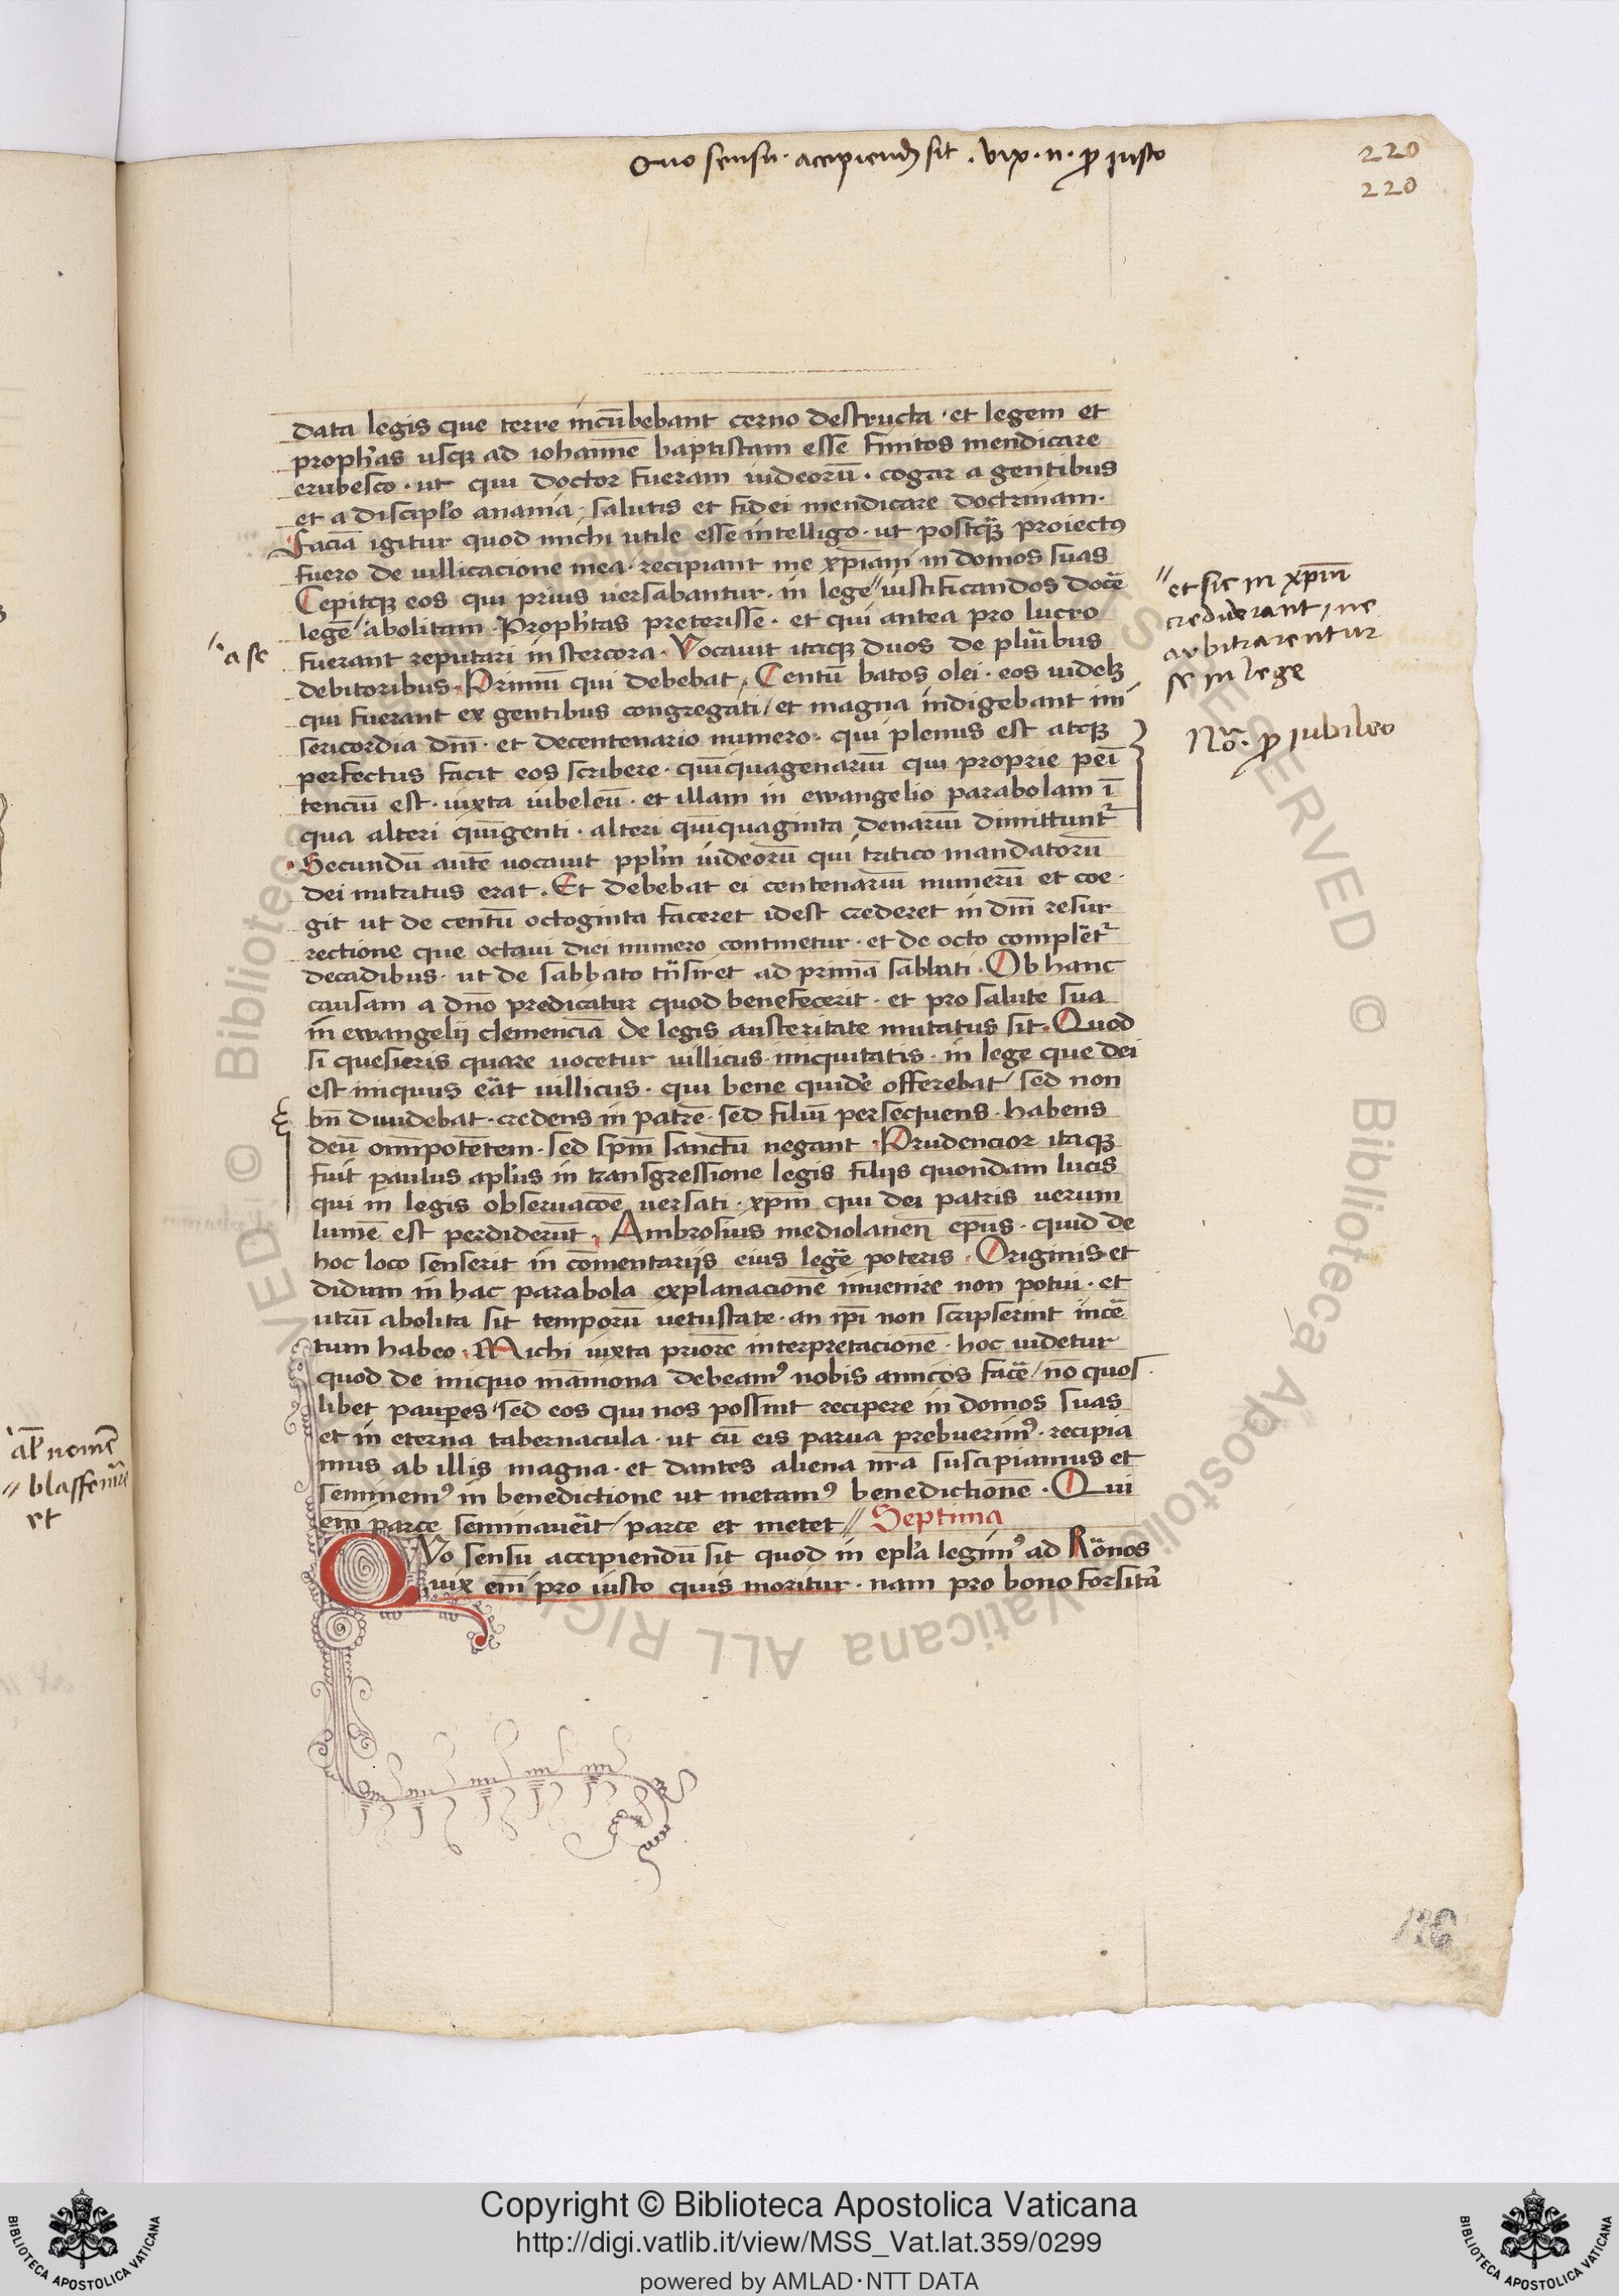 Quo sensu. accipiend sit. vix. n. ꝓ iusto
220
220
data legis que terre incu̅bebant cerno destructa · et legem et
proph̅as usq̨ ad iohanne̅ baptistam esse finitos mendicare
erubesco · ut qui doctor fueram iudeoru̅ · cogar a gentibus
et a discipl̅o anania · salutis et fidei mendicare doctrinam ·
facia̅ igitur quod michi utile esse intelligo · ut postq̅ proiectꝰ
fuero de uillicacione mea · recipiant me xp̅iani in domos suas
Cepitq̨ eos qui prius uersabantur · in lege // iustificandos doce̅
lege̅ abolitam · Proph̅tas preterisse · et qui antea pro lucro
fuerant reputari in stercora · Vocauit itaq̨ duos de plu̅ibus
debitoribus · Primu̅ qui debebat / Centu̅ batos olei · eos uidelꝫ
qui fuerant ex gentibus congregati / et magna indigebant mi
sericordia dn̅i · et de centenario numero · qui plenus est atq̨
perfectus facit eos scribere · qui̅quagenariu̅ qui proprie pei̅
tenciu̅ est · iuxta iubeleu̅ · et illam in ewangelio parabolam i̅
qua alteri qui̅genti · alteri qui̅quaginta denariu̅ dimittunt̅
Secundu̅ aute̅ uocauit ppl̅m iudeoru̅ qui tritico mandatoru̅
dei nutritus erat · Et debebat ei centenariu̅ numeru̅ et coe
git ut de centu̅ octoginta faceret idest crederet in dn̅i resur
rectione que octaui diei numero continetur · et de octo comple̅t̅
decadibus · ut de sabbato tn̅siret ad prima̅ sabbati · Ob hanc
causam a dn̅o predicatur quod benefecerit · et pro salute sua
in ewangelij clemencia̅ de legis austeritate mutatus sit · Quod
si quesieris quare uocetur uillicus iniquitatis · in lege que dei
est iniquus e̅at uillicus · qui bene quide̅ offerebat / sed non
bn̅ diuidebat · credens in patre̅ · sed filiu̅ persequens · habens
deu̅ omi̅pote̅tem · sed sp̅m sanctu̅ negant · Prudencior itaq̨
fuit paulus apl̅us in transgressione legis filijs quondam lucis
qui in legis obseruaco̅e uersati · xp̅m qui dei patris uerum
lume̅ est perdideru̅t · Ambrosius mediolanen̅ ep̅us · quid de
hoc loco senserit in co̅mentarijs eius lege̅ poteris · Originis et
didum in hac parabola explanacione̅ inuenire non potui · et
utru̅ abolita sit temporu̅ uetustate · an ip̅i non scripserint ince̅
tum habeo · Michi iuxta priore̅ interpretacione̅ · hoc uidetur
quod de iniquo ma̅mona debeamꝰ nobis amicos face̅ / no̅ quos
libet paup̲es / sed eos qui nos possint recipere in domos suas
et in eterna tabernacula · ut cu̅ eis parua prebuerimꝰ · recipia
mus ab illis magna · et dantes aliena nr̅a suscipiamus et
seminemꝰ in benedictione ut metamꝰ benedictione̅ · Qui
em̅ parce seminaue̅it / parce et metet // Septima
QVo sensu accipiendu̅ sit quod in epl̅a legimꝰ ad Ro̅nos
uix em̅ pro iusto quis moritur · nam pro bono forsita̅
a se
// et sic in xp̅m
crediderant / ne
arbitrarentur
se in lege
No̅. ꝓ iubileo
al̅ nome̅
// blasfem
et
Copyright © Biblioteca Apostolica Vaticana
http://digi.vatlib.it/view/MSS_Vat.lat.359/0299
powered by AMLAD·NTT DATA
BIBLIOTECA APOSTOLICA VATICANA
BIBLIOTECA APOSTOLICA VATICANA